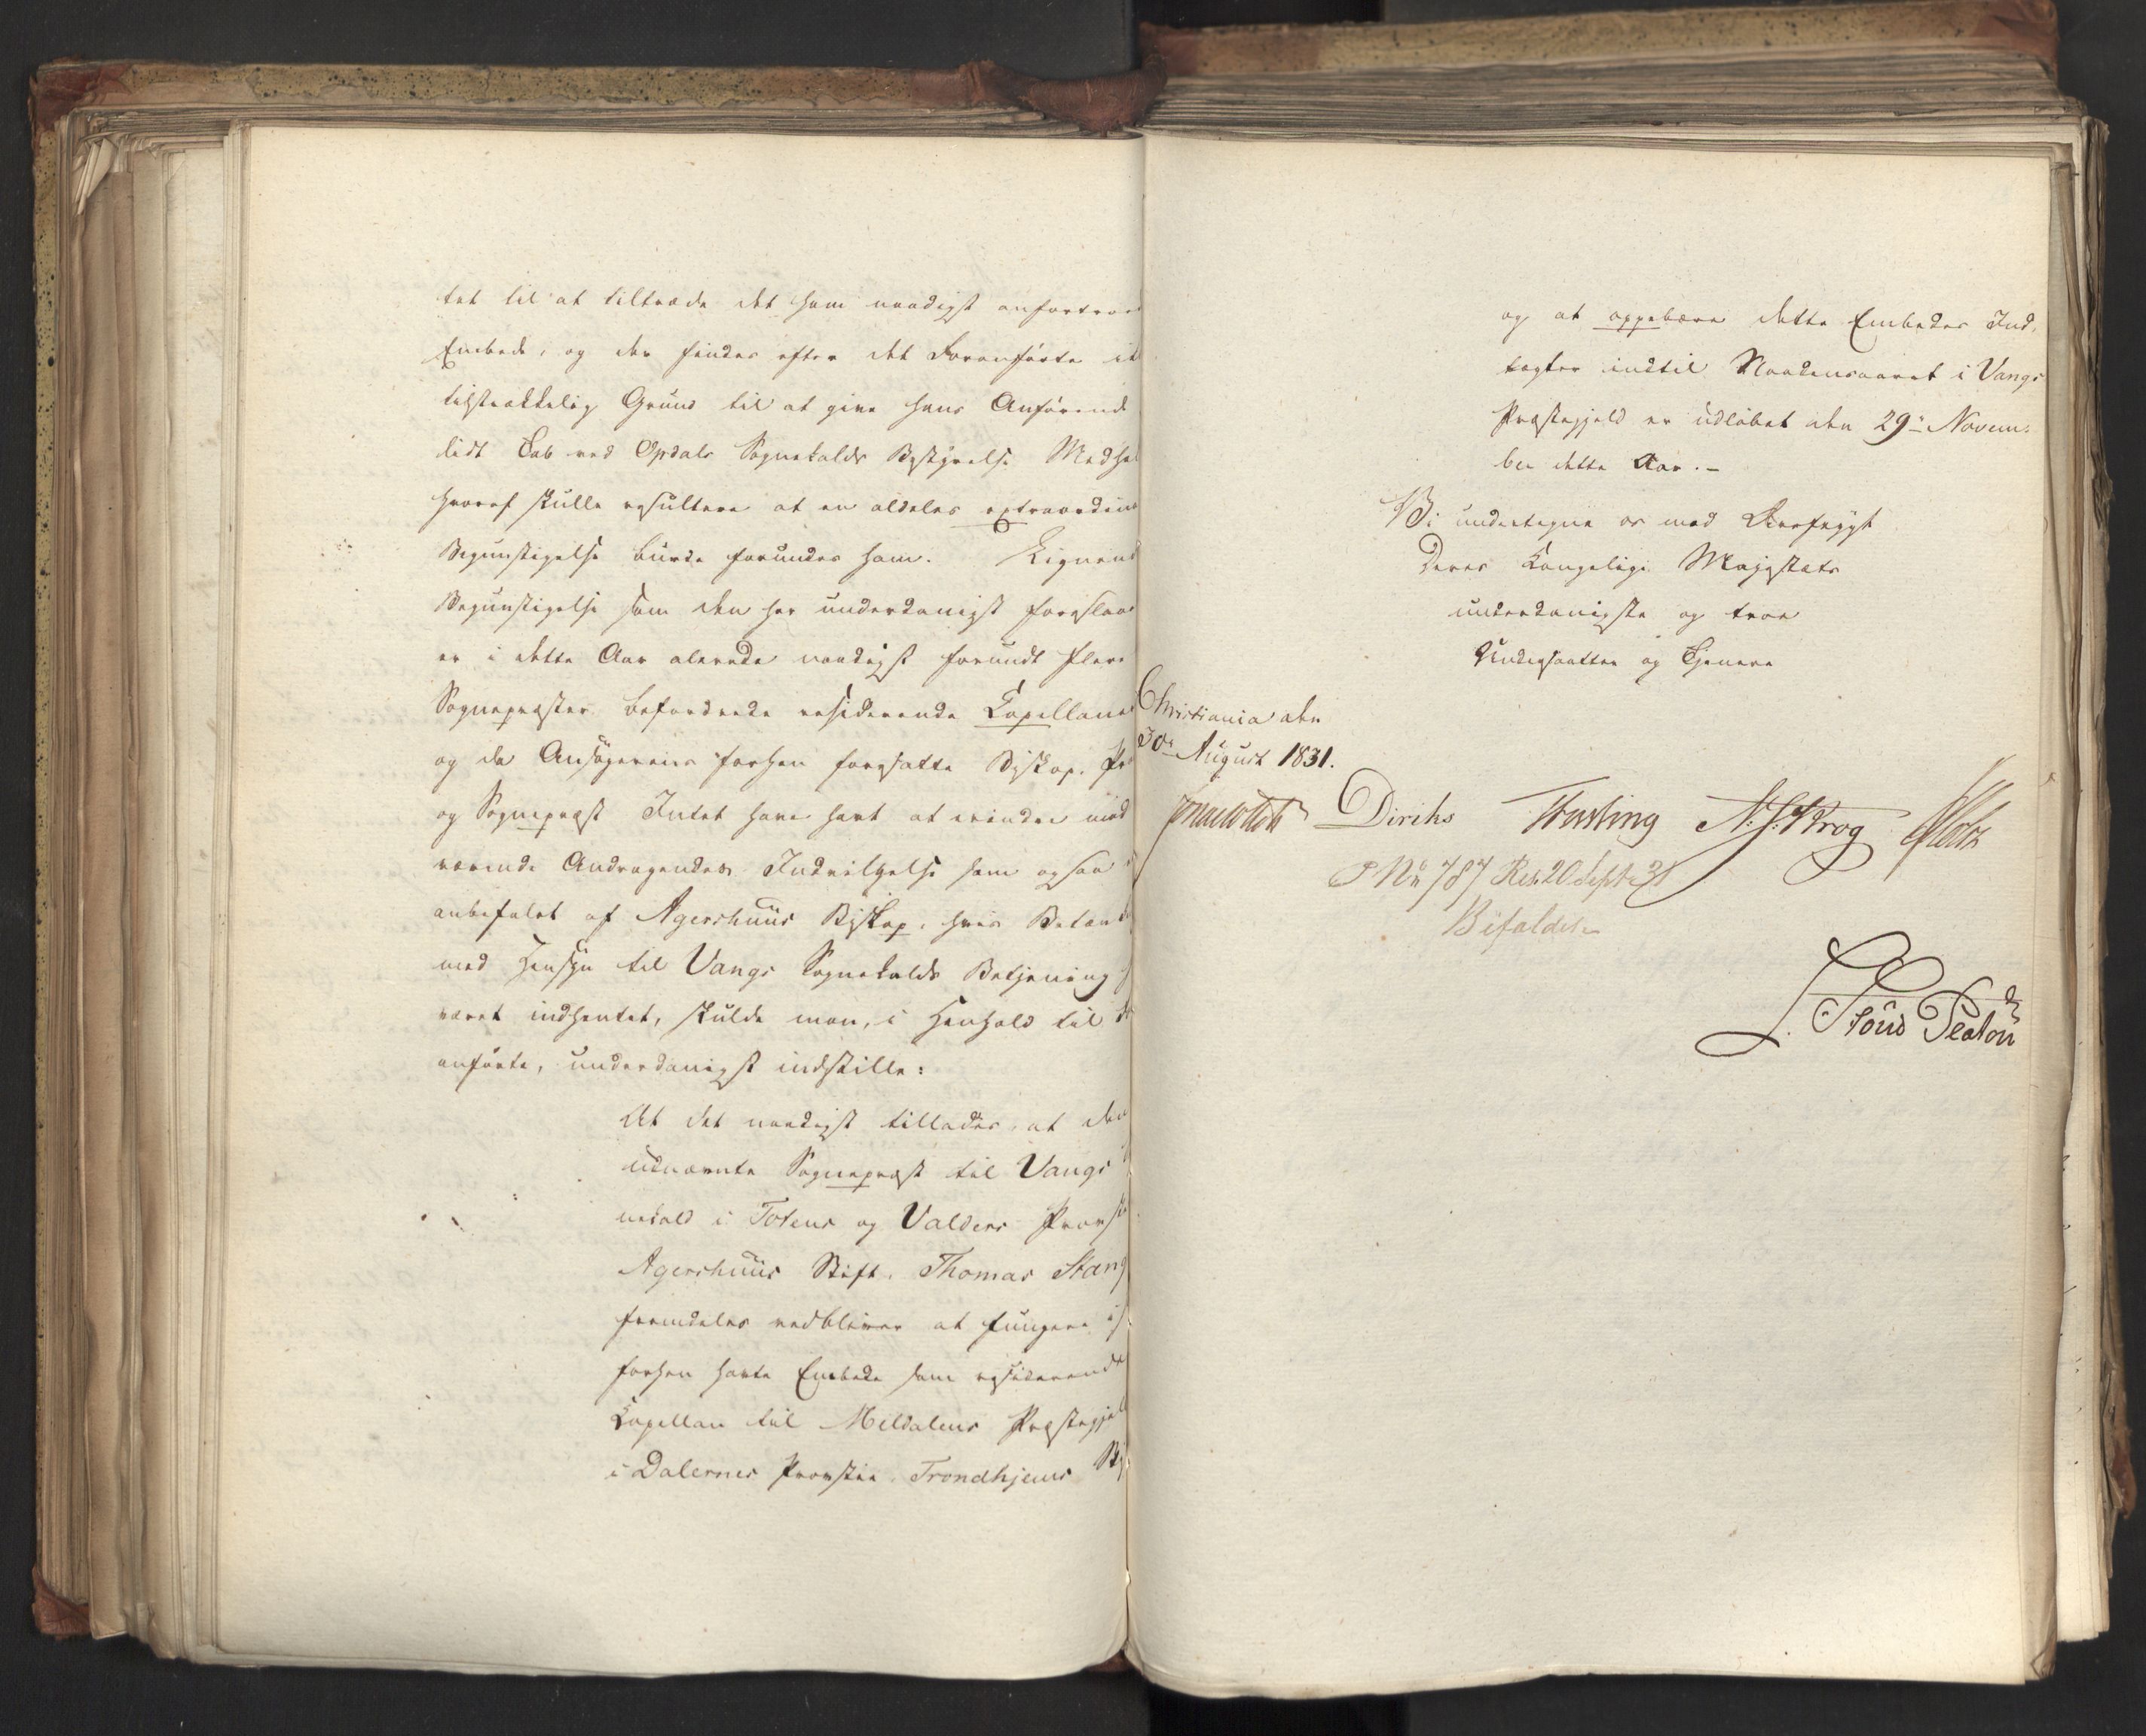 tet til at tiltræde det ham naadigst anfortroe
Embede, og der findes efter det Foranførte ik
tilstrækkelig Grund til at give hans Anførende
lidt Tab ved Opdals Sognekalds Bestyrelse Medhol
hvoraf skulle resultere at en aldeles extraordinæ
Begunstigelse burde forundes ham. Lignende
Begunstigelse som den her underdanigst foreslaae
er i dette Aar allerede naadigst forundt flere
Sognepræster befordrede residerende Capellaner
og da Ansøgerens forhen foresatte Biskop, Pro
og Sognepræst Intet have havt at erindre mod
værende Andragendes Indvilgelse som ogsaa
anbefalet af Agershuus Biskop, hvis Betænk
med Hensyn til Vangs Sognekalds Betjening
været indhentet, skulde man, i Henhold til
anførte, underdanigst indstille:
At det naadigst tillades, at den
udnævnte Sognepræst til Vangs
nekald i Totens og Valders Provsti
Agershuus Stift, Thomas Stang
fremdeles vedbliver at fungere i
forhen havte Embede som residerende
Capellan til Meldalens Præstegjel
i Dalernes Provstie, Trondhjems Sti
og at oppebære dette Embedes Ind-
tægter indtil Naadensaaret i Vangs
Præstegjeld er udløbet den 29de Novem-
ber dette Aar.-
Vi undertegne os med Ærefrygt
Deres Kongelige Majestæts
underdanigste og troe
Undersaatter og Tjenere
Christiania den
30te August 1831.
Diriks Fasting N. J. Krog
P No 787 Res. 20 Septr 31
Bifaldes
Stoud Platou